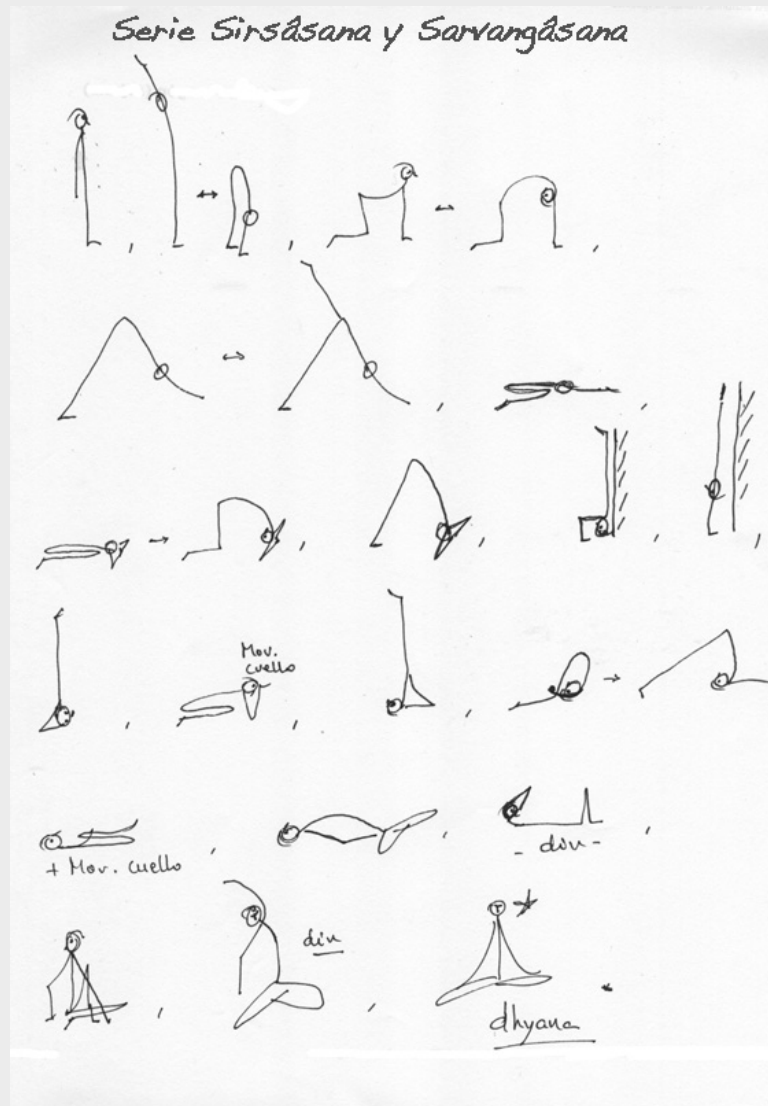 Serie Sirsâsana y Sarvangâsana
Mov.
cuello
+ Mov. cuello
- din -
din
dhyana